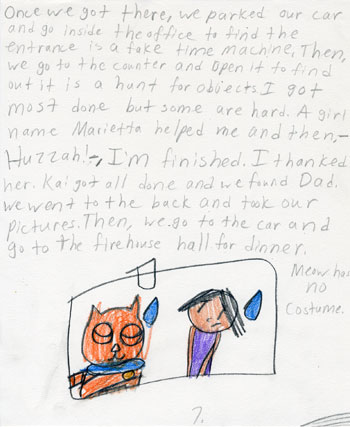 Once we got there, we parked our car
and go inside the office to find the
entrance is a fake time machine. Then,
we go to the counter and open it to find
out it is a hunt for objects. I got
most done but some are hard. A girl
name Marietta helped me and then,-
Huzzah!-, I'm finished. I thanked
her. Kai got all done and we found Dad.
we went to the back and took our
pictures. Then, we go to the car and
go to the firehouse hall for dinner.
Meow has
no
costume.
7.